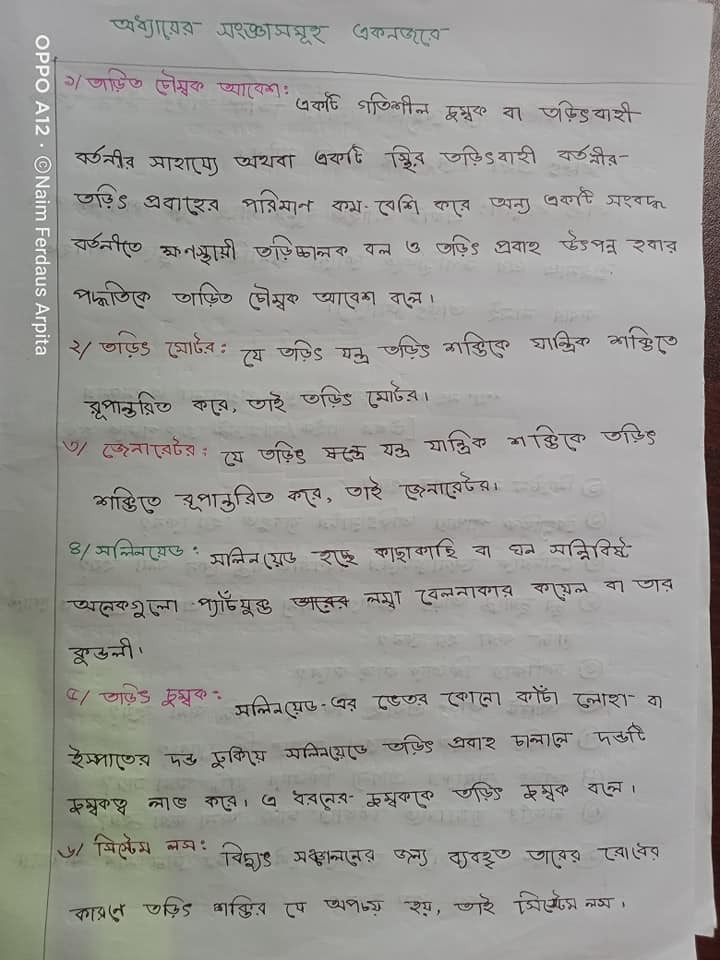 অধ্যায়ের সংজ্ঞাসমূহ একনজরে
১/ তাড়িত চৌম্বক আবেশ:
একটি গতিশীল চুম্বক বা তড়িৎবাহী
বর্তনীর সাহায্যে অথবা একটি স্থির তড়িৎবাহী বর্তনীর
তড়িৎ প্রবাহের পরিমান কম-বেশি করে অন্য একটি সংবদ্ধ
বর্তনীতে ক্ষনস্থায়ী তড়িচ্চালক বল ও তড়িৎ প্রবাহ উৎপন্ন হবার
পদ্ধতিকে তাড়িত চৌম্বক আবেশ বলে।
২/ তড়িৎ মোটর: যে তড়িৎ যন্ত্র তড়িৎ শক্তিকে যান্ত্রিক শক্তিতে
রূপান্তরিত করে, তাই তড়িৎ মোটর।
৩/ জেনারেটর: যে তড়িৎ যন্ত্র যান্ত্রিক শক্তিকে তড়িৎ
শক্তিতে রূপান্তরিত করে, তাই জেনারেটর।
৪/ সলিনয়েড: সলিনয়েড হচ্ছে কাছাকাছি বা ঘন সন্নিবিষ্ট
অনেকগুলো প্যাঁচযুক্ত তারের লম্বা বেলনাকার কয়েল বা তার
কুন্ডলী।
৫/ তড়িৎ চুম্বক: সলিনয়েড-এর ভেতর কোনো কাঁচা লোহা বা
ইস্পাতের দন্ড ঢুকিয়ে সলিনয়েডে তড়িৎ প্রবাহ চালালে দন্ডটি
চুম্বকত্ব লাভ করে। এ ধরনের চুম্বককে তড়িৎ চুম্বক বলে।
৬/ সিস্টেম লস: বিদ্যুৎ সঞ্চালনের জন্য ব্যবহৃত তারের রোধের
কারনে তড়িৎ শক্তির যে অপচয় হয়, তাই সিস্টেম লস।
OPPO A12 · ©Naim Ferdaus Arpita